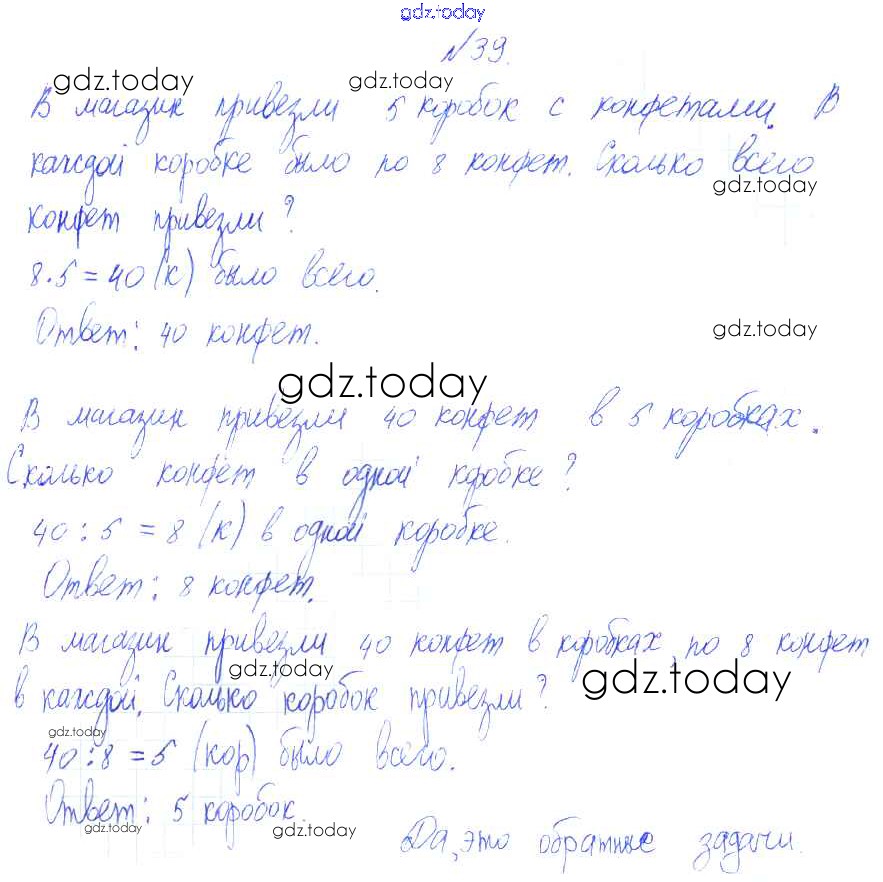 gdz.today
№39.
gdz.today gdz.today
В магазин привезли 5 коробок с конфетами. В
каждой коробке было по 8 конфет. Сколько всего
gdz.today
конфет привезли?
8·5=40 (к) было всего.
Ответ: 40 конфет.
gdz.today
gdz.today
В магазин привезли 40 конфет в 5 коробках.
Сколько конфет в одной коробке?
40:5=8 (к) в одной коробке.
Ответ: 8 конфет.
В магазин привезли 40 конфет в коробках, по 8 конфет
gdz.today gdz.today
в каждой. Сколько коробок привезли?
gdz.today
40:8=5 (кор) было всего.
Ответ: 5 коробок.
gdz.today gdz.today
Да, это обратные задачи.